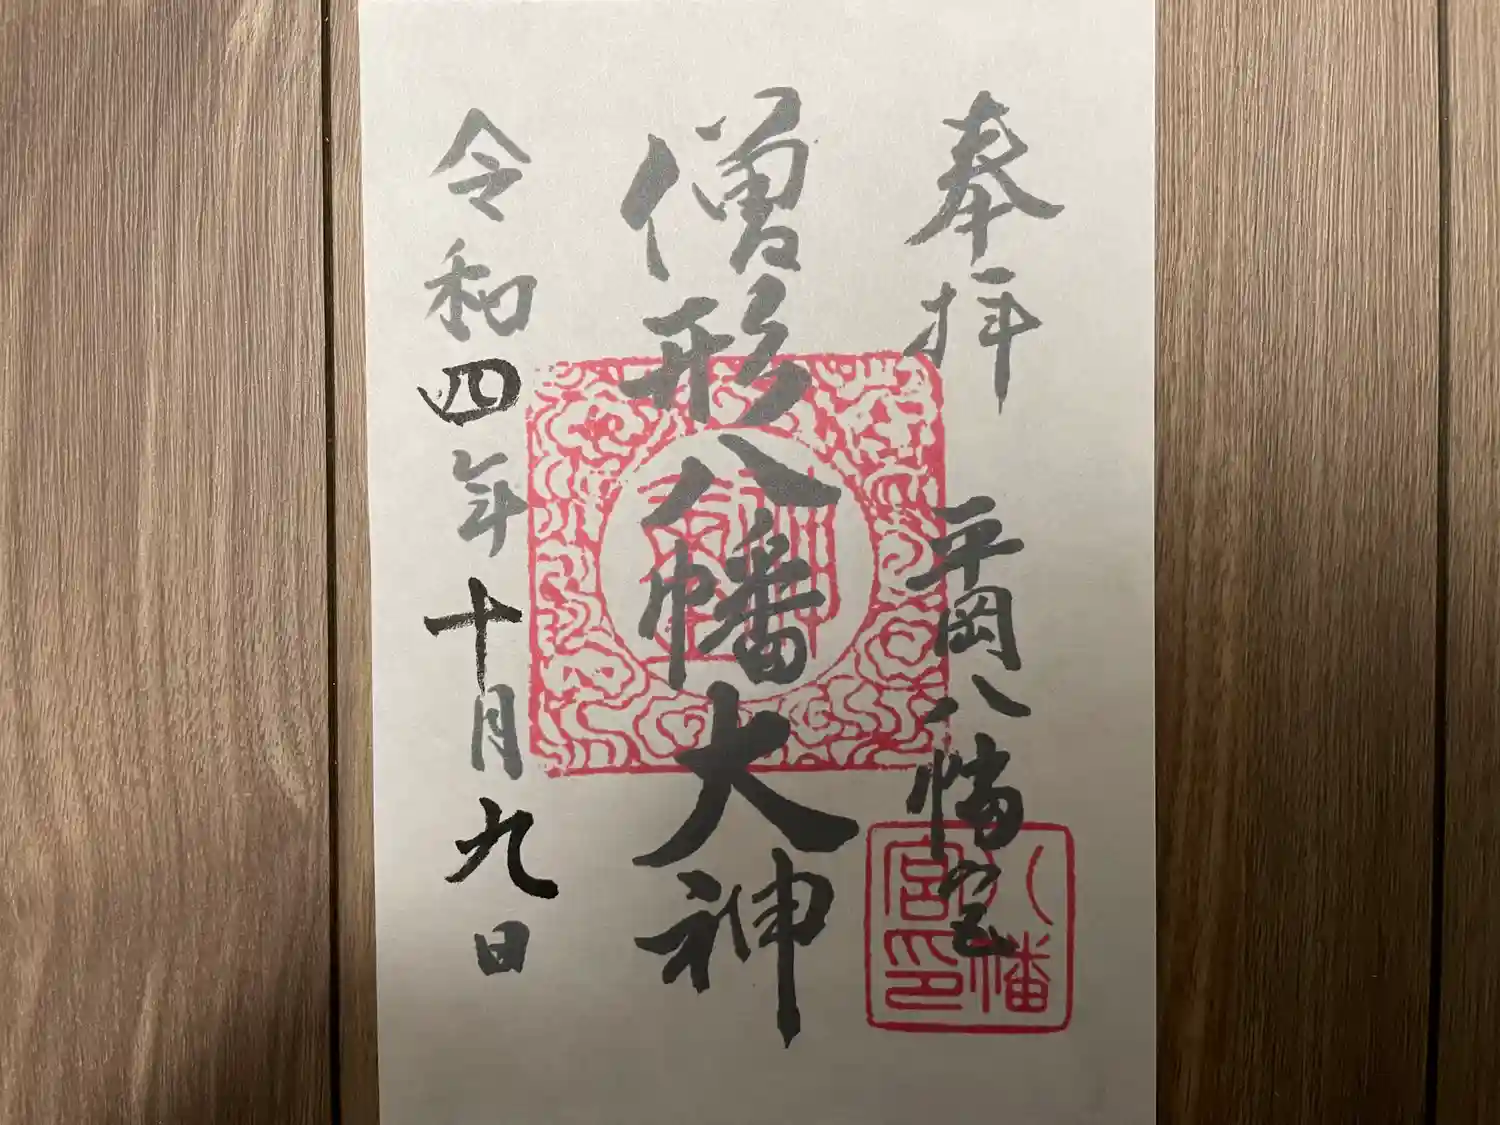 奉拝
平岡八幡宮
八幡
宮印
僧形八幡大神
令和四年十月九日